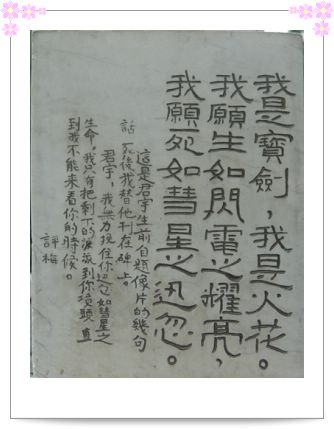 我是寶劍,我是火花。
我願生如閃電之耀亮,
我願死如彗星之迅忽。
這是君宇生前自題像片的幾句
話,死後我替他刊在碑上。
君宇,我無力挽住你迅忽如彗星之
生命,我只有把剩下的淚流到你墳頭,直
到我不能來看你的時候。
評梅